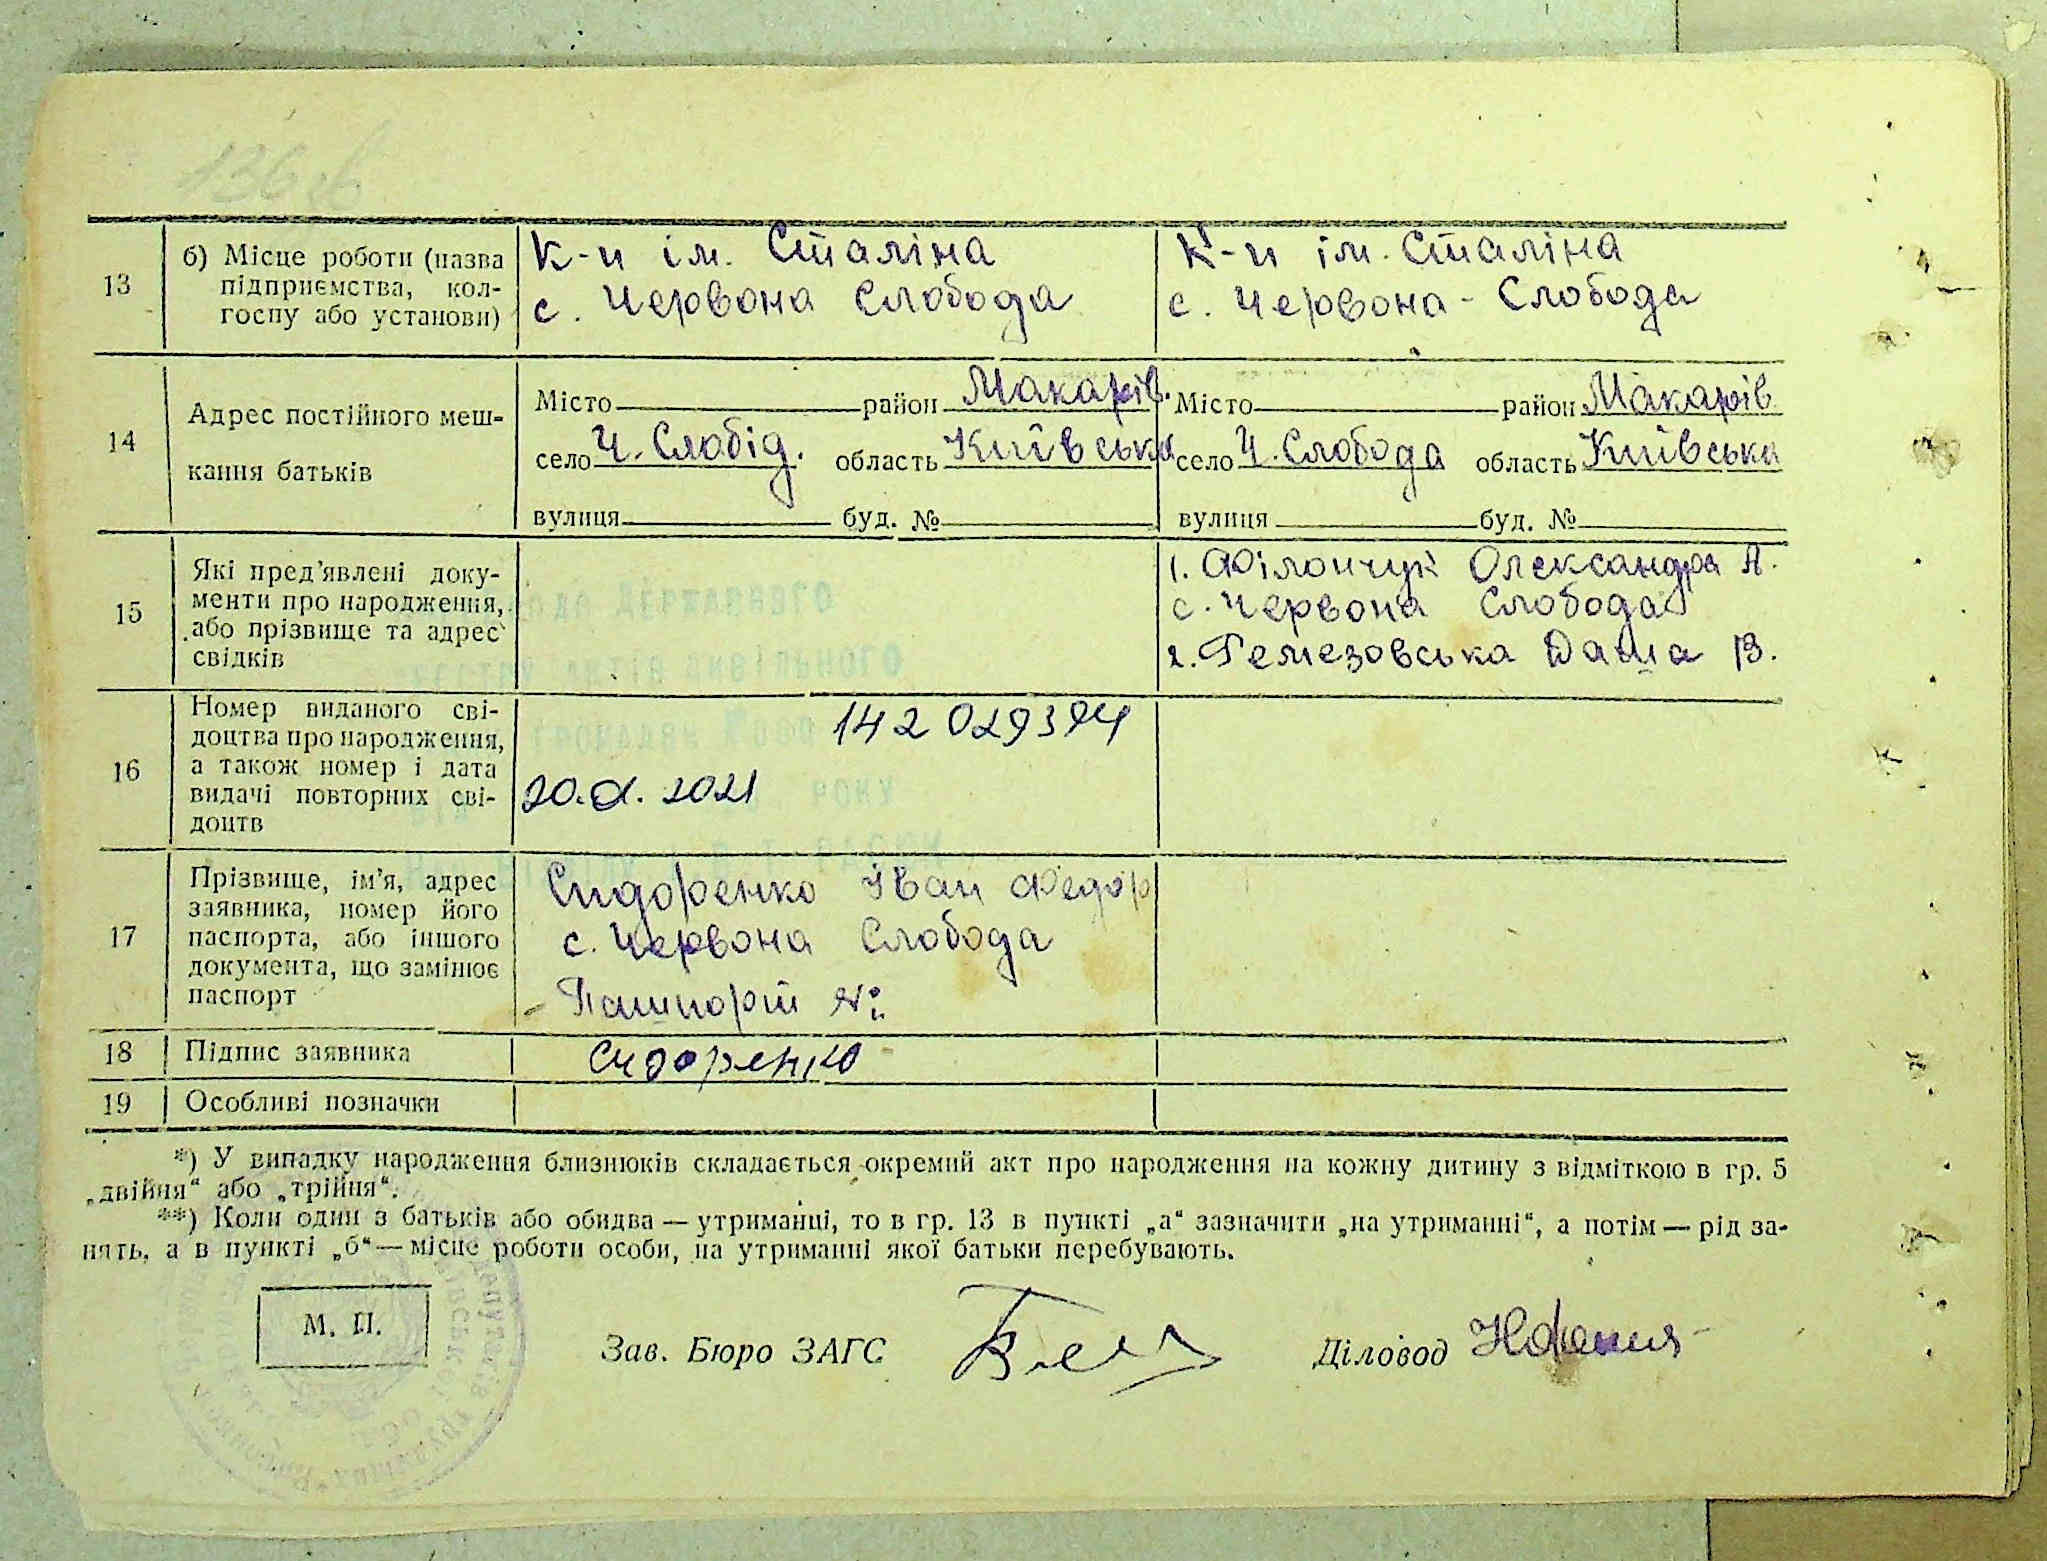 136 б
13
б) Місце роботи (назва підприємства, колгоспу або установи)
К-п ім. Сталіна
с. Червона Слобода
К-п ім. Сталіна
с. Червона - Слобода
14
Адрес постійного меш-
кання батьків
Місто район Макарів.
село Ч. Слобід. область Київська
вулиця буд. №
Місто район Макарів
село Ч. Слобода область Київська
вулиця буд. №
15
Які пред'явлені доку-
менти про народження,
або прізвище та адрес
свідків
1. Філончук Олександра А.
с. Червона Слобода
2. Ремезовська Даша В.
16
Номер виданого сві-
доцтва про народження,
а також номер і дата
видачі повторних сві-
доцтв
142 029394
2021
17
Прізвище, ім'я, адрес
заявника, номер його
паспорта, або іншого
документа, що замінює
паспорт
Сидоренко Іван Федор
с. Червона Слобода
Пашпорт №
18
Підпис заявника
Сидоренко
19
Особливі позначки
*) У випадку народження близнюків складається окремий акт про народження на кожну дитину з відміткою в гр. 5
„двійня“ або „трійня“.
**) Коли один з батьків або обидва — утриманці, то в гр. 13 в пункті „а“ зазначити „на утриманні“, а потім — рід за-
нять, а в пункті „б“ — місце роботи особи, на утриманні якої батьки перебувають.
М. П.
Зав. Бюро ЗАГС
Діловод